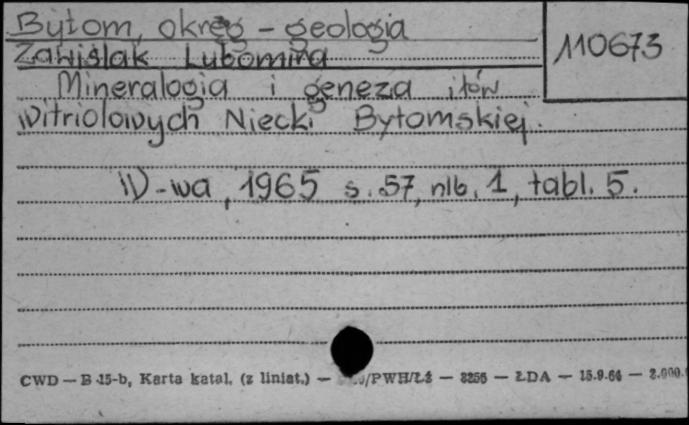 Bytom, okręg - geologia
110673
Zawiślak Lubomira
Mineralogia i geneza iłów
witriolowych Niecki Bytomskiej.
W-wa, 1965 s. 57, nlb. 1, tabl. 5.
CWD — B-15-b, Karta katal. (z liniat.) — /PWH/Łż — 3256 — ŁDA — 15.9.64 — 2.000.